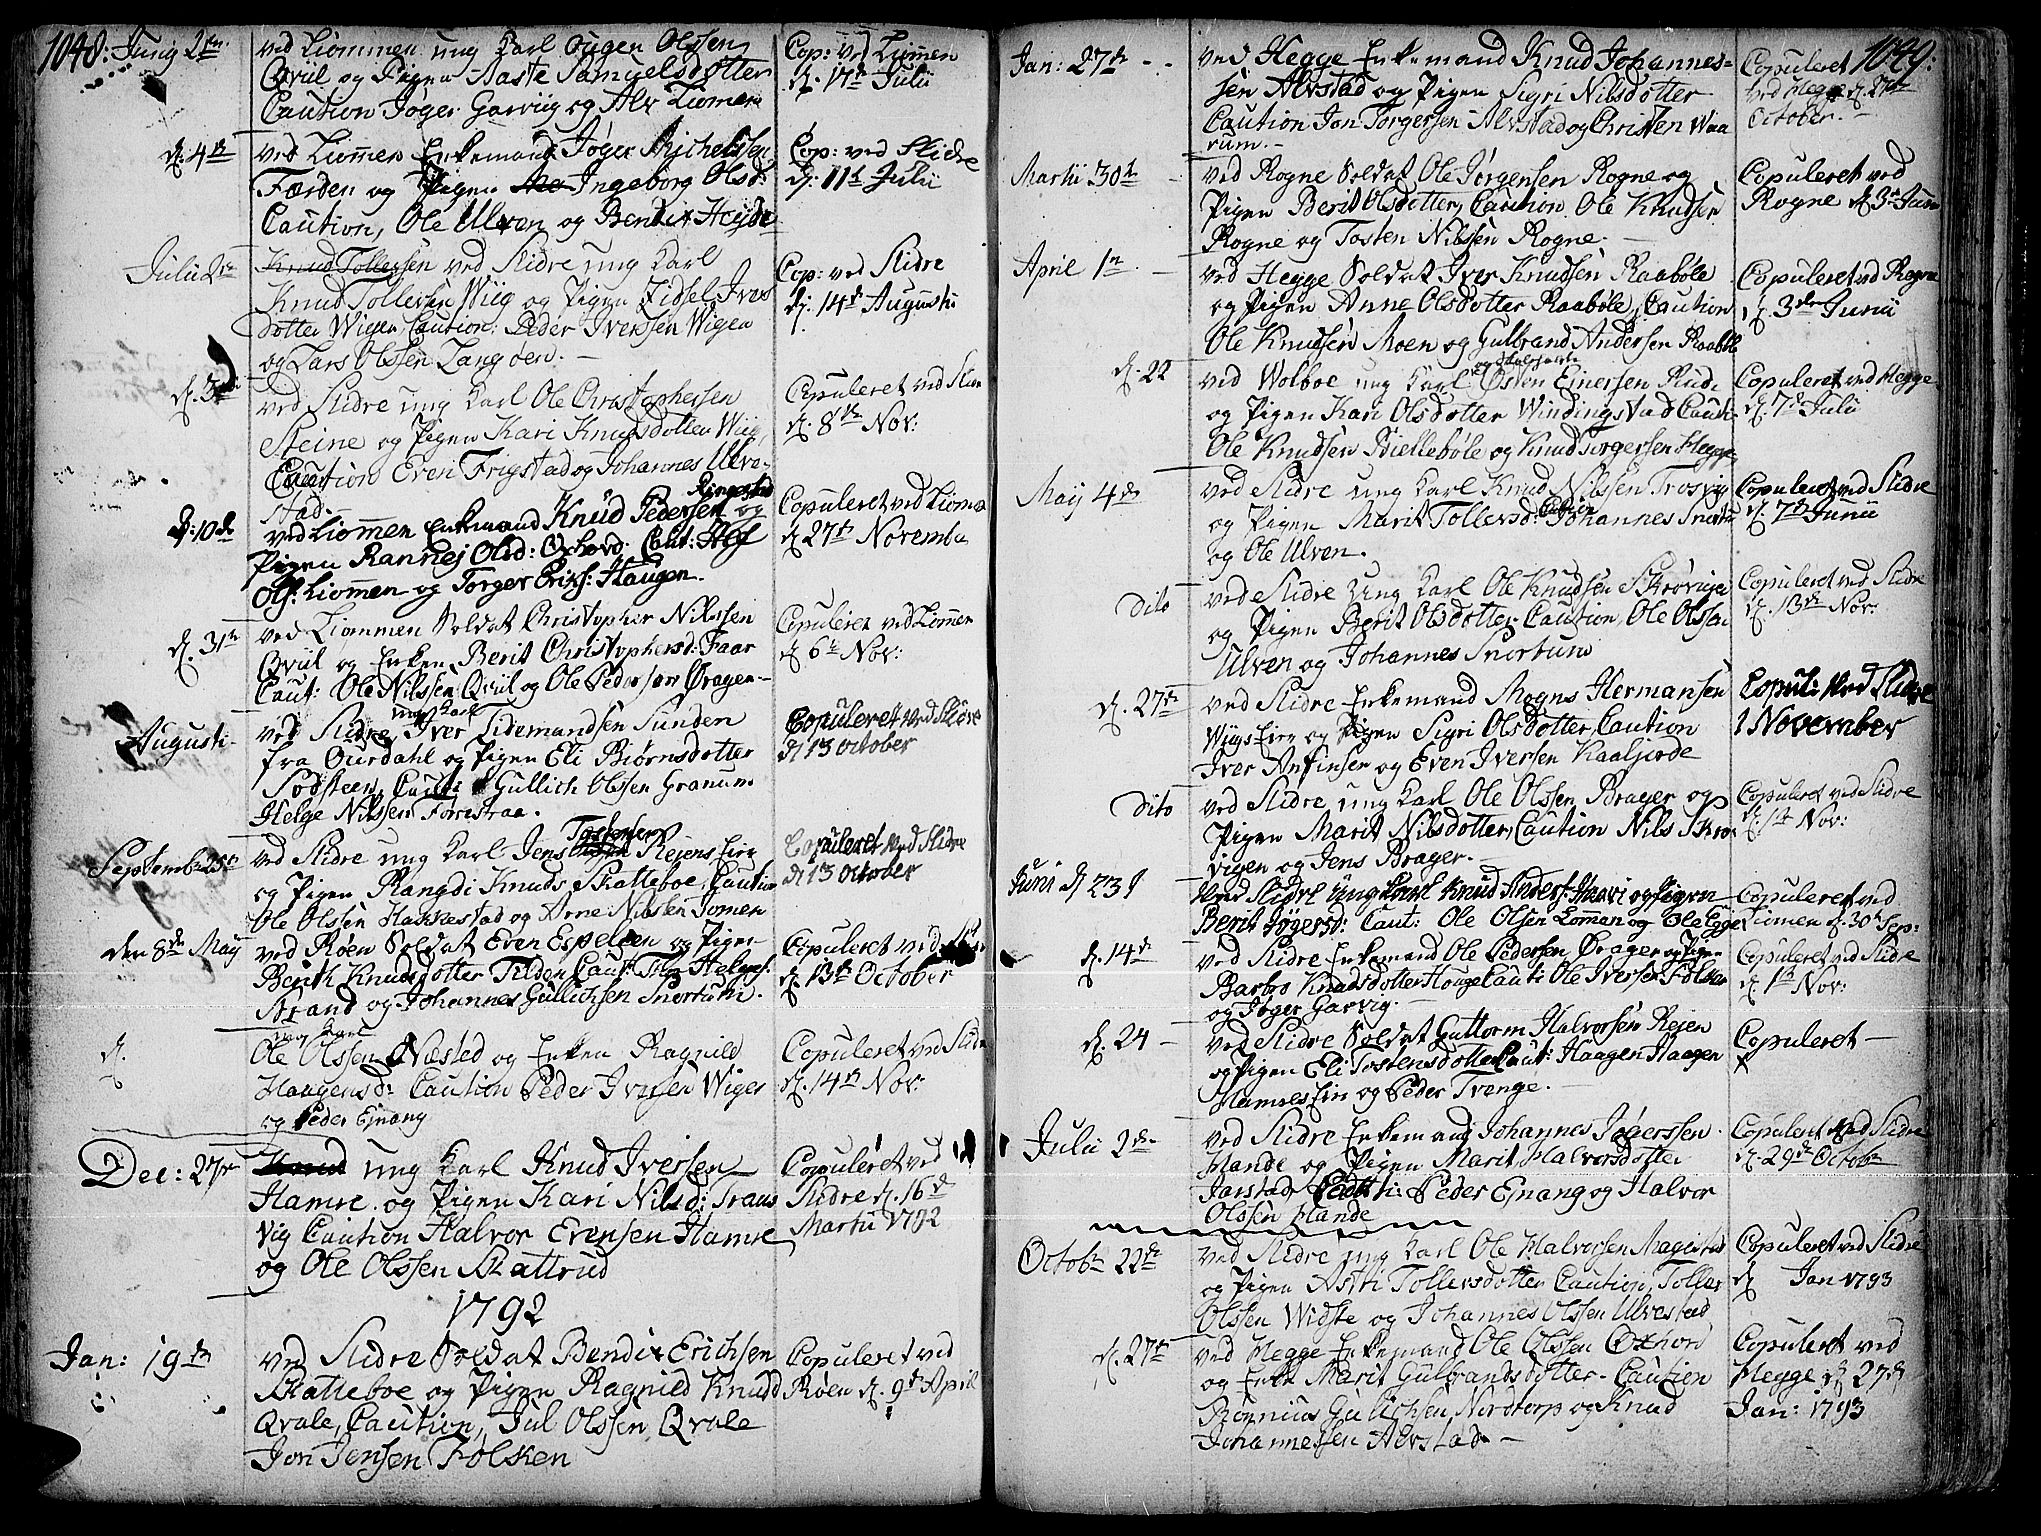 1048: Junij 2den ved Liommen ung Karl Ougen Olssen Cop: ved Liomen
Qviil og Pigen Aaste Samuelsdotter d. 17de Julii
Caution Joger Garviig og Alv Liomen
d. 4de ved Liommen Enkemand Jøger Michelssen Cop: ved Slidre
Færden og Pigen Ingeborg Olsd: d. 11te Julii
Caution, Ole Ulven og Bendix Heyde
Julii 2den Knud Tollefsen ved Slidre ung Karl Cop: ved Slidre
Knud Tollefsen Wiig og Pigen Zidsel Ivers d. 14de Augustii
dotter Wigen Caution: Peder Iverssen Wigen
og Lars Olssen Langøen.
d. 3de ved Slidre ung Karl Ole Christophersen Copuleret ved Slidre
Steine og Pigen Kari Knudsdotter Wiig, d. 8de Nov:
Caution Even Frigstad og Johannes Ulve-
stad. Ringestad
d: 10de ved Liomen Enkemand Knud Pedersen og Copuleret ved Liomen
Pigen Rannej Olsd: Oxhovd: Caut: Alf d. 27de November
Ols: Liommen og Torger Eriks: Haugen.
d. 31te ved Liommen Soldat Christopher Nilssen Copuleret ved Lommen
Qviil og Enken Berit Christophersd: Faar d. 6te Nov:
Caut: Ole Nilssen Qviil og Ole Pederssen Øragen
ung Karl
Augusti- ved Slidre Iver Tidemandsen Sunden Copuleret ved Slidre
fra Ourdahl og Pigen Eli Biørnsdotter d. 13 October
Sodsteen, Caut: Gullich Olssen Granum
Helge Nilssen Forestraa.
Tostensen
Septemb: 25de ved Slidre ung Karl Jens Rejens Eire Copuleret ved Slidre
og Pigen Rangdi Knuds Skatteboe, Caution d. 13 October
Ole Olssen Hakkestad og Arne Nilssen Jomen
den 8de Maij ved Røen Soldat Even Espelsen og Pigen Copuleret ved
Berith Knudsdotter Tilden Caut: Helges: d. 13de October
Strand og Johannes Gullichsen Snortum.
ung Karl
d. Ole Olssen Næsted og Enken Ragnild Copuleret ved Slidre
Haagensd: Caution Peder Iversen Wigen d. 14de Nov:
og Peder Ejnang
Dec: 27de ung Karl Knud Iverssen Copuleret ved
Hamre. og Pigen Kari Nilsd: Traas Slidre d. 16de
Viig Caution Halvor Evensen Hamre Martii 1792
og Ole Olssen Skattrud
1792
Jan: 19de ved Slidre Soldat Bendix Erichsen Copuleret ved
Skatteboe og Pigen Ragnild Knudsd Røen d. 9de April
Qvale, Caution, Jul Olssen Qvale
Jon Jensen Folsken
1049:
Jan: 27de ved Hegge Enkemand Knud Johannes- Copuleret
sen Alvstad og Pigen Sigri Nilsdotter ved Hegge d. 27de
Caution Jon Torgersen Alvstad og Christen Waa October.
rum.
Martii 30te ved Rogne Soldat Ole Jørgensen Rogne og Copuleret ved
Pigen Berit Olsdotter, Caution Ole Knudsen Rogne d. 3de Junii
Rogne og Tosten Nilssen Rogne.
April 1ten ved Hegge Soldat Iver Knudsen Raabøle Copuleret ved Rogne
og Pigen Anne Olsdotter Raabøle, Caution d. 3de Junii
Ole Knudsen Moen og Gulbrand Andersen Raabøle
d. 22 ved Wolboe ung Karl Østen Einersen Rude Copuleret ved Hegge
og Pigen Kari Olsdotter Windingstad Caut: d. 7de Julii
Ole Knudsen Biellebøle og Knud Torgersen Hegge
Maij 4de ved Slidre ung Karl Knud Nilssen Trosvig Copuleret ved Slidre
og Pigen Marit Tollefsd: Caution Johannes Snortum d. 7de Junii
og Ole Ulven.
Dito ved Slidre Ung Karl Ole Knudsen Skrøvigen Copuleret ved Slidre
og Pigen Berit Olsdotter Caution, Ole Olssen d. 13de Nov:
Ulven og Johannes Snortum
d. 27de ved Slidre Enkemand Mogns Hermansen Copul: ved Slidre
Wiigs Eire og Pigen Sigri Olsdotter, Caution 1 November
Iver Anfinsen og Even Iversen Kaaljorde
Dito ved Slidre ung Karl Ole Olssen Brager og Copuleret ved Slidre
Pigen Marit Nilsdotter, Caution Nils Skrø d. 1te Nov:
vigen og Jens Brager.
Juni d 23d ved Slidre ung Karl Knud Anders: Haavi og Pigen Copuleret ved
Berit Jøgersd: Caut: Ole Olsen Lomman og Ole Egge Liomen d. 30te Sep:
d. 14de ved Slidre Enkemand Ole Pedersen Ørager og Pigen Copuleret ved Slidre
Barbro Knudsdotter Houge Caut: Ole Iversen Folsken d. 1te Nov:
og Jøger Garvig.
d. 24 - ved Slidre Soldat Guttorm Halvorsen Rejen Copuleret -
og Pigen Eli Tostensdotter Caut: Haagen Haagen
Hamres Eire og Peder Trenge.
Julii 2den ved Slidre Enkemand Johannes Jøgerssen Copuleret ved Slidre
Hande og Pigen Marit Halvorsdotter d. 29de Octobr
Jarstad, Caut: Peder Ejnang og Halvor
Olssen Hande
Octobr 22de ved Slidre ung Karl Ole Halvorsen Magistad Copuleret ved Slidre
og Pigen Asti Tollefsdotter Caution, Tollef d. Jan 1793
Olssen Widste og Johannes Olssen Ulvestad
d. 27de ved Hegge Enkemand Ole Olssen Oxhovd Copuleret ved
og Enke Marit Gulbrandsdotter. Caution Hegge d. 27de
Rønnius Gulichsen Nordtorp og Knud Jan: 1793
Johannessen Alvstad. -